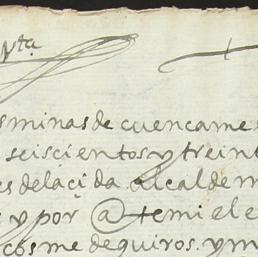 Vta
sminas de cuencame
seiscientos y treint
es delaçi da alcaldem
y por @temi el e
cosme de quiros. y m